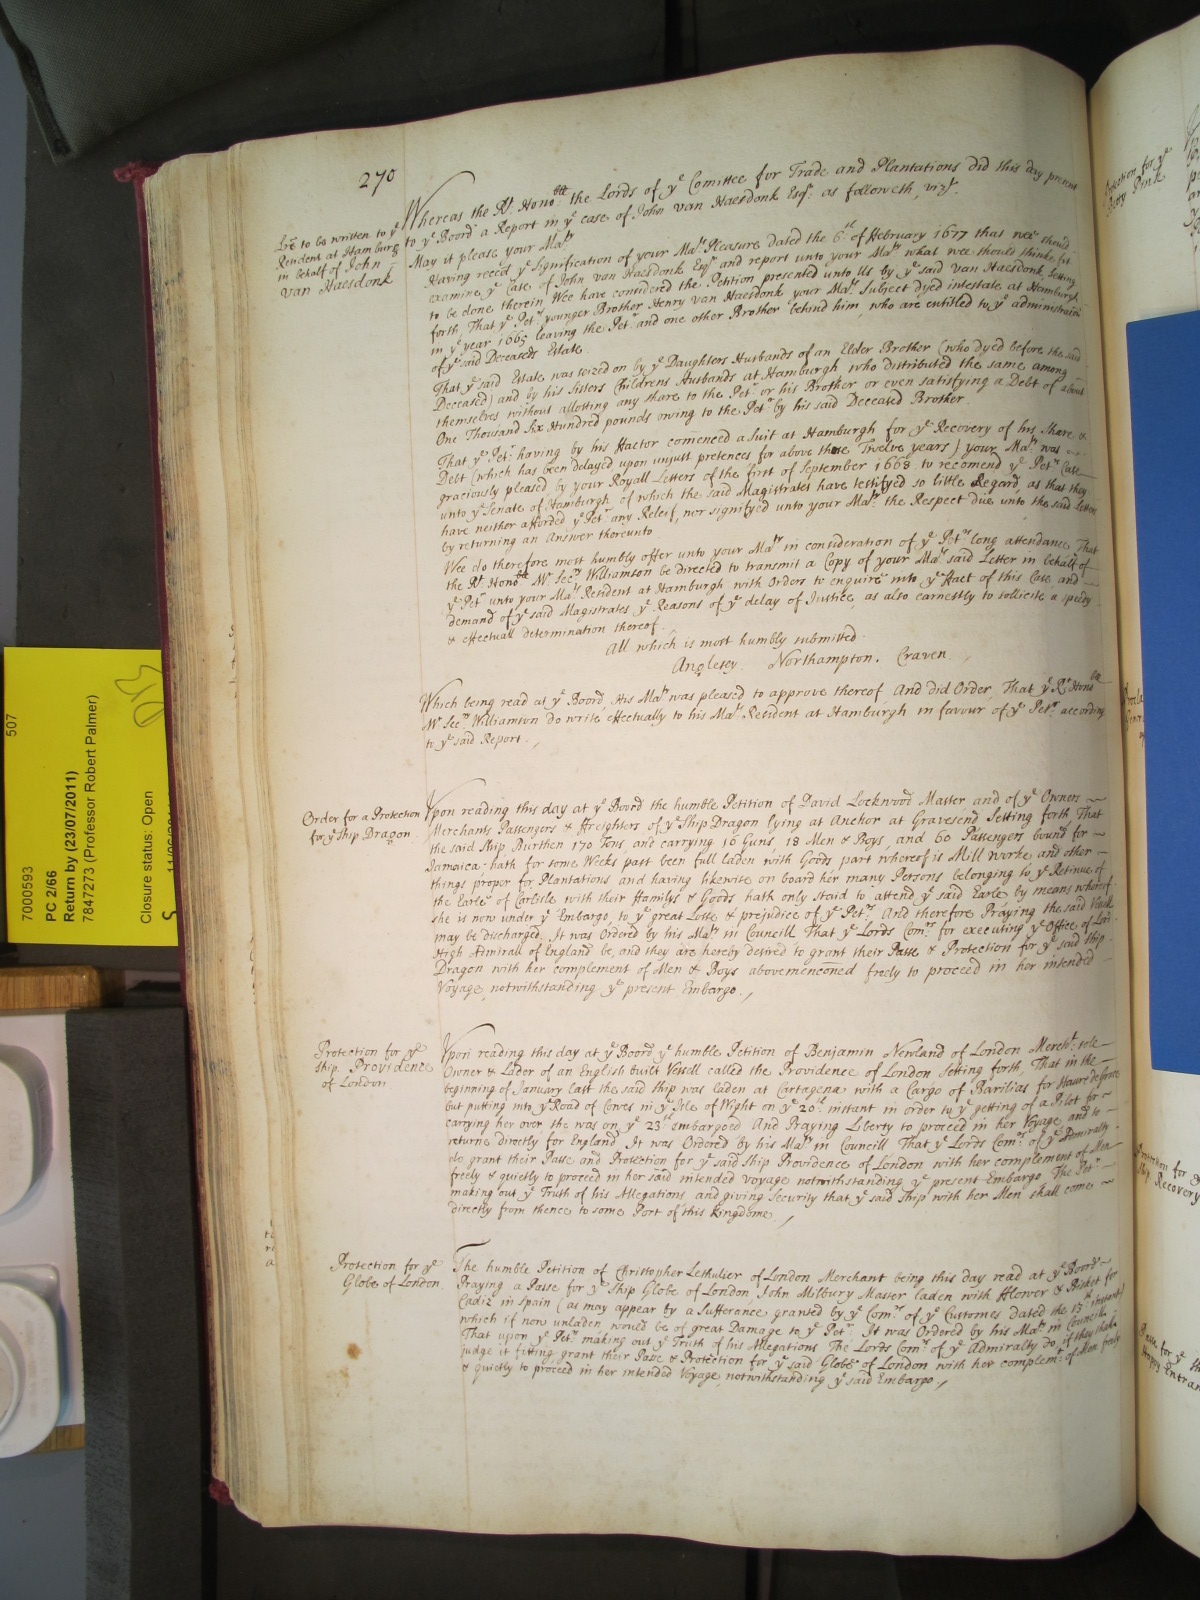 270
Lre to be written to ye
Resident at Hamburg
in behalf of John
van Haesdonk
Whereas the Rt. Honoble the Lords of ye Comittee for Trade and Plantations did this day present
to ye Board a Report in ye case of John van Haesdonk Esqr. as followeth, vizt.
May it please your Maty
Having reced ye signification of your Mats Pleasure dated the 6th of February 1677 that wee should
examine ye Case of John van Haesdonk Esqr and report unto your Maty what wee should thinke fit
to be done therein Wee have considered the Petition presented unto Us by ye said van Haesdonk, setting
forth, That ye Petrs younger Brother Henry van Haesdonk your Mats Subject dyed intestate at Hamburgh
in ye year 1665 leaving the Petr. and one other Brother behind him, who are entitled to ye administracon
of ye said Deceaseds Estate.
That ye said Estate was seized on by ye Daughters Husbands of an Elder Brother (who dyed before the said
Deceased) and by his Sisters Childrens Husbands at Hamburgh who distributed the same among
themselves without allotting any share to the Petr or his Brother or even satisfying a Debt of about
One Thousand Six Hundred pounds owing to the Petr by his said Deceased Brother.
That ye Petr: having by his Factor comenced a Suit at Hamburgh for ye Recovery of his Share &
Debt (which has been delayed upon unjust pretences for above these Twelve years) your Maty was
graciously pleased by your Royall Letters of the first of September 1668 to recomend ye Petrs Case
unto ye Senate of Hamburgh of which the said Magistrates have testifyed so little Regard, as that they
have neither afforded ye Petr any Releif, nor signifyed unto your Maty. the Respect due unto the said Letters
by returning an Answer thereunto.
Wee do therefore most humbly offer unto your Maty in consideration of ye Petrs long attendance, That
the Rt. Honoble Mr. Secry Williamson be directed to transmit a Copy of your Mats said Letter in behalf of
ye Petr unto your Mats Resident at Hamburgh with Orders to enquire into ye Fact of this Case, and
demand of ye said Magistrates ye Reasons of ye delay of Justice, as also earnestly to sollicite a speedy
& effectuall determination thereof.
All which is most humbly submitted.
Anglesey. Northampton. Craven.
Which being read at ye Board, His Maty was pleased to approve thereof And did Order, That ye Rt Honoble
Mr. Secry Williamson do write effectually to his Mats. Resident at Hamburgh in favour of ye Petr. according
to ye said Report.
Order for a Protection
for ye Ship Dragon.
Upon reading this day at ye Board the humble Petition of David Lockwood Master and of ye Owners
Merchants Passengers & Freighters of ye Ship Dragon lying at Anchor at Gravesend Setting forth, That
the said Ship Burthen 170 Tons, and carrying 16 Guns, 18 Men & Boys, and 60 Passengers bound for
Jamaica hath for some Weeks past been full laden with Goods part whereof is Mill worke and other
things proper for Plantations and having likewise on board her many Persons belonging to ye Retinue of
the Earle of Carlisle with their Familys & Goods hath only staid to attend ye said Earle by means whereof
she is now under ye Embargo to ye great Losse & prejudice of ye Petrs. And therefore Praying the said Vessell
may be discharged. It was Ordered by his Maty in Councill That ye Lords Comrs. for executing ye Office of Lord
High Admirall of England be, and they are hereby desired to grant their Passe & Protection for ye said Ship
Dragon with her complement of Men & Boys abovemenconed freely to proceed in her intended
Voyage, notwithstanding ye present Embargo.
Protection for ye
Ship Providence
of London
Upon reading this day at ye Board ye humble Petition of Benjamin Newland of London Mercht. sole
Owner & Lader of an English built Vessell called the Providence of London Setting forth, That in the
beginning of January last the said Ship was laden at Cartagena with a Cargo of Barilias for Havre de Grace
but putting into ye Road of Cowes in ye Isle of Wight on ye 20th. instant in order to ye getting of a Pilot for
carrying her over she was on ye 23d embargoed And Praying Liberty to proceed in her Voyage and to
returne directly for England. It was Ordered by his Maty in Councill That ye Lords Comrs. of ye Admiralty
do grant their Passe and Protection for ye said Ship Providence of London with her complement of Men
freely & quietly to proceed in her said intended voyage notwithstanding ye present Embargo The Petr
making out ye Truth of his Allegations and giving Security that ye said Ship with her Men shall come
directly from thence to some Port of this Kingdome.
Protection for ye
Globe of London
The humble Petition of Christopher Lethulier of London Merchant being this day read at ye Board
Praying a Passe for ye Ship Globe of London, John Milbury Master laden with Flower & Bisket for
Cadiz in Spain (as may appear by a Sufferance granted by ye Comrs. of ye Customes dated the 13th instant)
which if now unladen would be of great Damage to ye Petr. It was Ordered by his Maty in Councill
That upon ye Petrs making out ye Truth of his Allegations The Lords Comrs. of ye Admiralty do, if they shall
judge it fitting grant their Passe & Protection for ye said Globe of London with her complemt. of Men freely
& quietly to proceed in her intended Voyage, notwithstanding ye said Embargo.
7000593
507
PC 2/66
Return by (23/07/2011)
7847273 (Professor Robert Palmer)
Closure status: Open
Protection for ye
Pink
Protection for ye
Ship Recovery
Passe for ye
Happy Entran